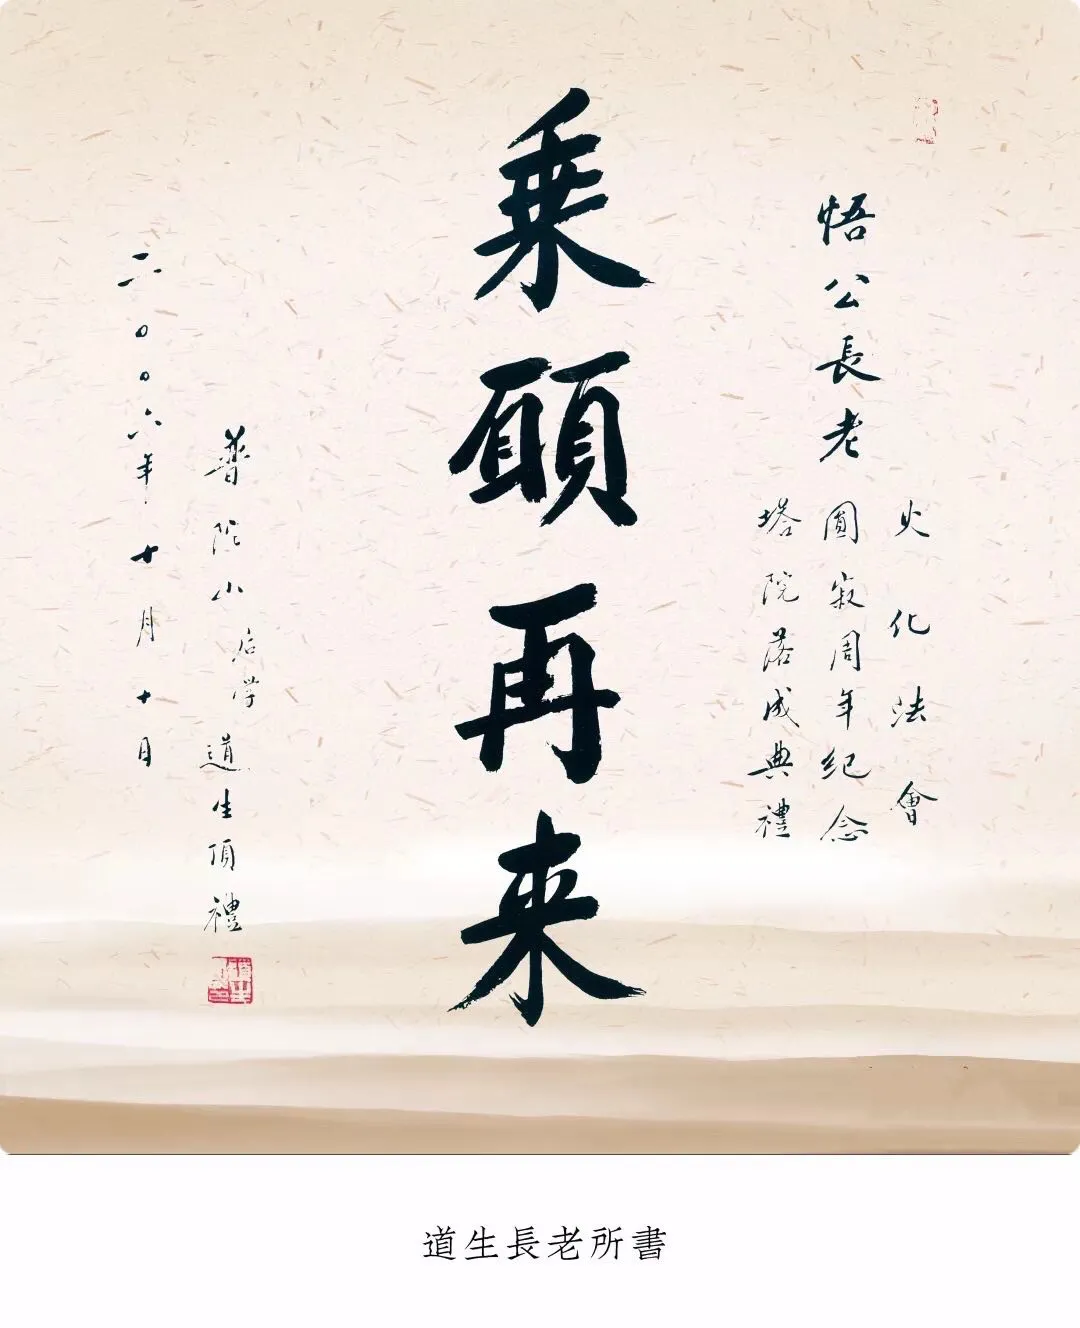 悟公長老
火化法會
圓寂周年紀念
塔院落成典禮
乗願再来
普陀山后学道生頂禮
二〇〇六年十月十日
道生長老所書